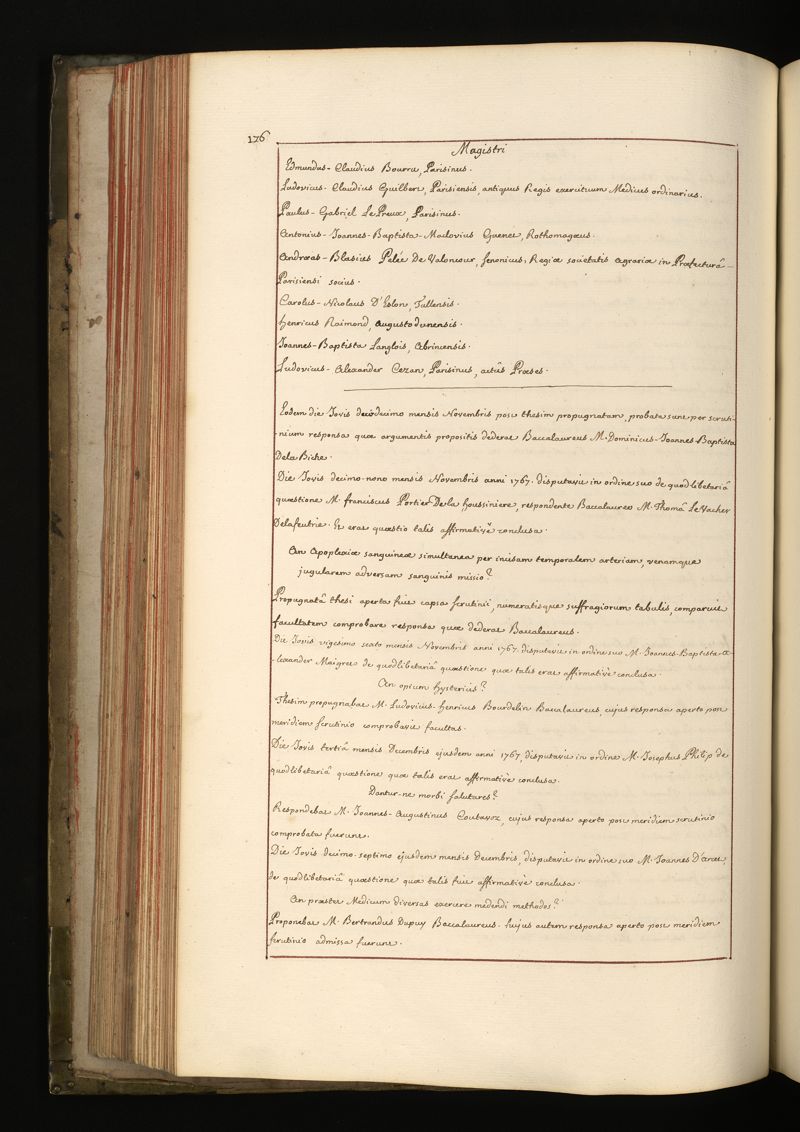 176
Magistri
Edmundus-Claudius Bourru, Parisinus.
Ludovicus-Claudius Guilbert, Parisiensis, antiquus Regis exercituum Medicus ordinarius.
Paulus-Gabriel Le Preux, Parisinus.
Antonius-Joannes-Baptista-Maclovius Guenet, Rothomagæus.
Andræas-Blasius Pelée De Valoncour, Senonicus, Regiæ societatis agrariæ in Præfecturâ-
Parisiensi socius.
Carolus-Nicolaus D'Eslon, Tullensis.
Henricus Raimond, augustodunensis.
Joannes-Baptista Langlois, Abrincensis.
Ludovicus-Alexander Cezan, Parisinus, actûs Præses.
Eodem die Jovis decimo mensis Novembris post thesim propugnatam, probata sunt per scruti-
-nium responsa quæ argumentis propositis dederat Baccalaureus M. Dominicus-Joannes-Baptista
De la Biche.
Die Jovis decimo-nono mensis Novembris anni 1767. disputavit in ordine suo de quodlibetariâ
quæstione M. franciscus Portier De la houssiniere, respondente Baccalaureo M. Thomâ Le Vacher
Delafeutrie. Et erat quæstio talis affirmativè conclusa.
An Apoplexiæ sanguineæ simultanea per incisam temporalem arteriam, venamque
jugularem adversam sanguinis missio?
Propugnatâ thesi aperta fuit capsa scrutinii, numeratisque suffragiorum tabulis, comparuit
facultatem comprobare responsa quæ dederat Baccalaureus.
Die Jovis vigesimo sexto mensis Novembris anni 1767. disputavit in ordine suo M. Joannes-Baptista a-
-lexander Maigret de quodlibetariâ quæstione quæ talis erat affirmativè conclusa.
An opium hystericis?
Thesim propugnabat M. Ludovicus-henricus Bourdelin Baccalaureus cujus responsa aperto post
meridiem scrutinio comprobavit facultas.
Die Jovis tertiâ mensis Decembris ejusdem anni 1767, disputavit in ordine M. Josephus Philip de
quodlibetariâ quæstione quæ talis erat affirmativè conclusa.
Dantur-ne morbi salutares?
Respondebat M. Joannes-Augustinus Coutavoz, cujus responsa aperto post meridiem scrutinio
comprobata fuerunt.
Die Jovis decimo-septimo ejusdem mensis Decembris, disputavit in ordine suo M. Joannes D'arcet
de quodlibetariâ quæstione quæ talis fuit affirmativè conclusa.
An præstet Medicum diversas exercere medendi methodos?
Proponebat M. Bertrandus Dupuy Baccalaureus. hujus autem responsa aperto post meridiem
scrutinio admissa fuerunt.